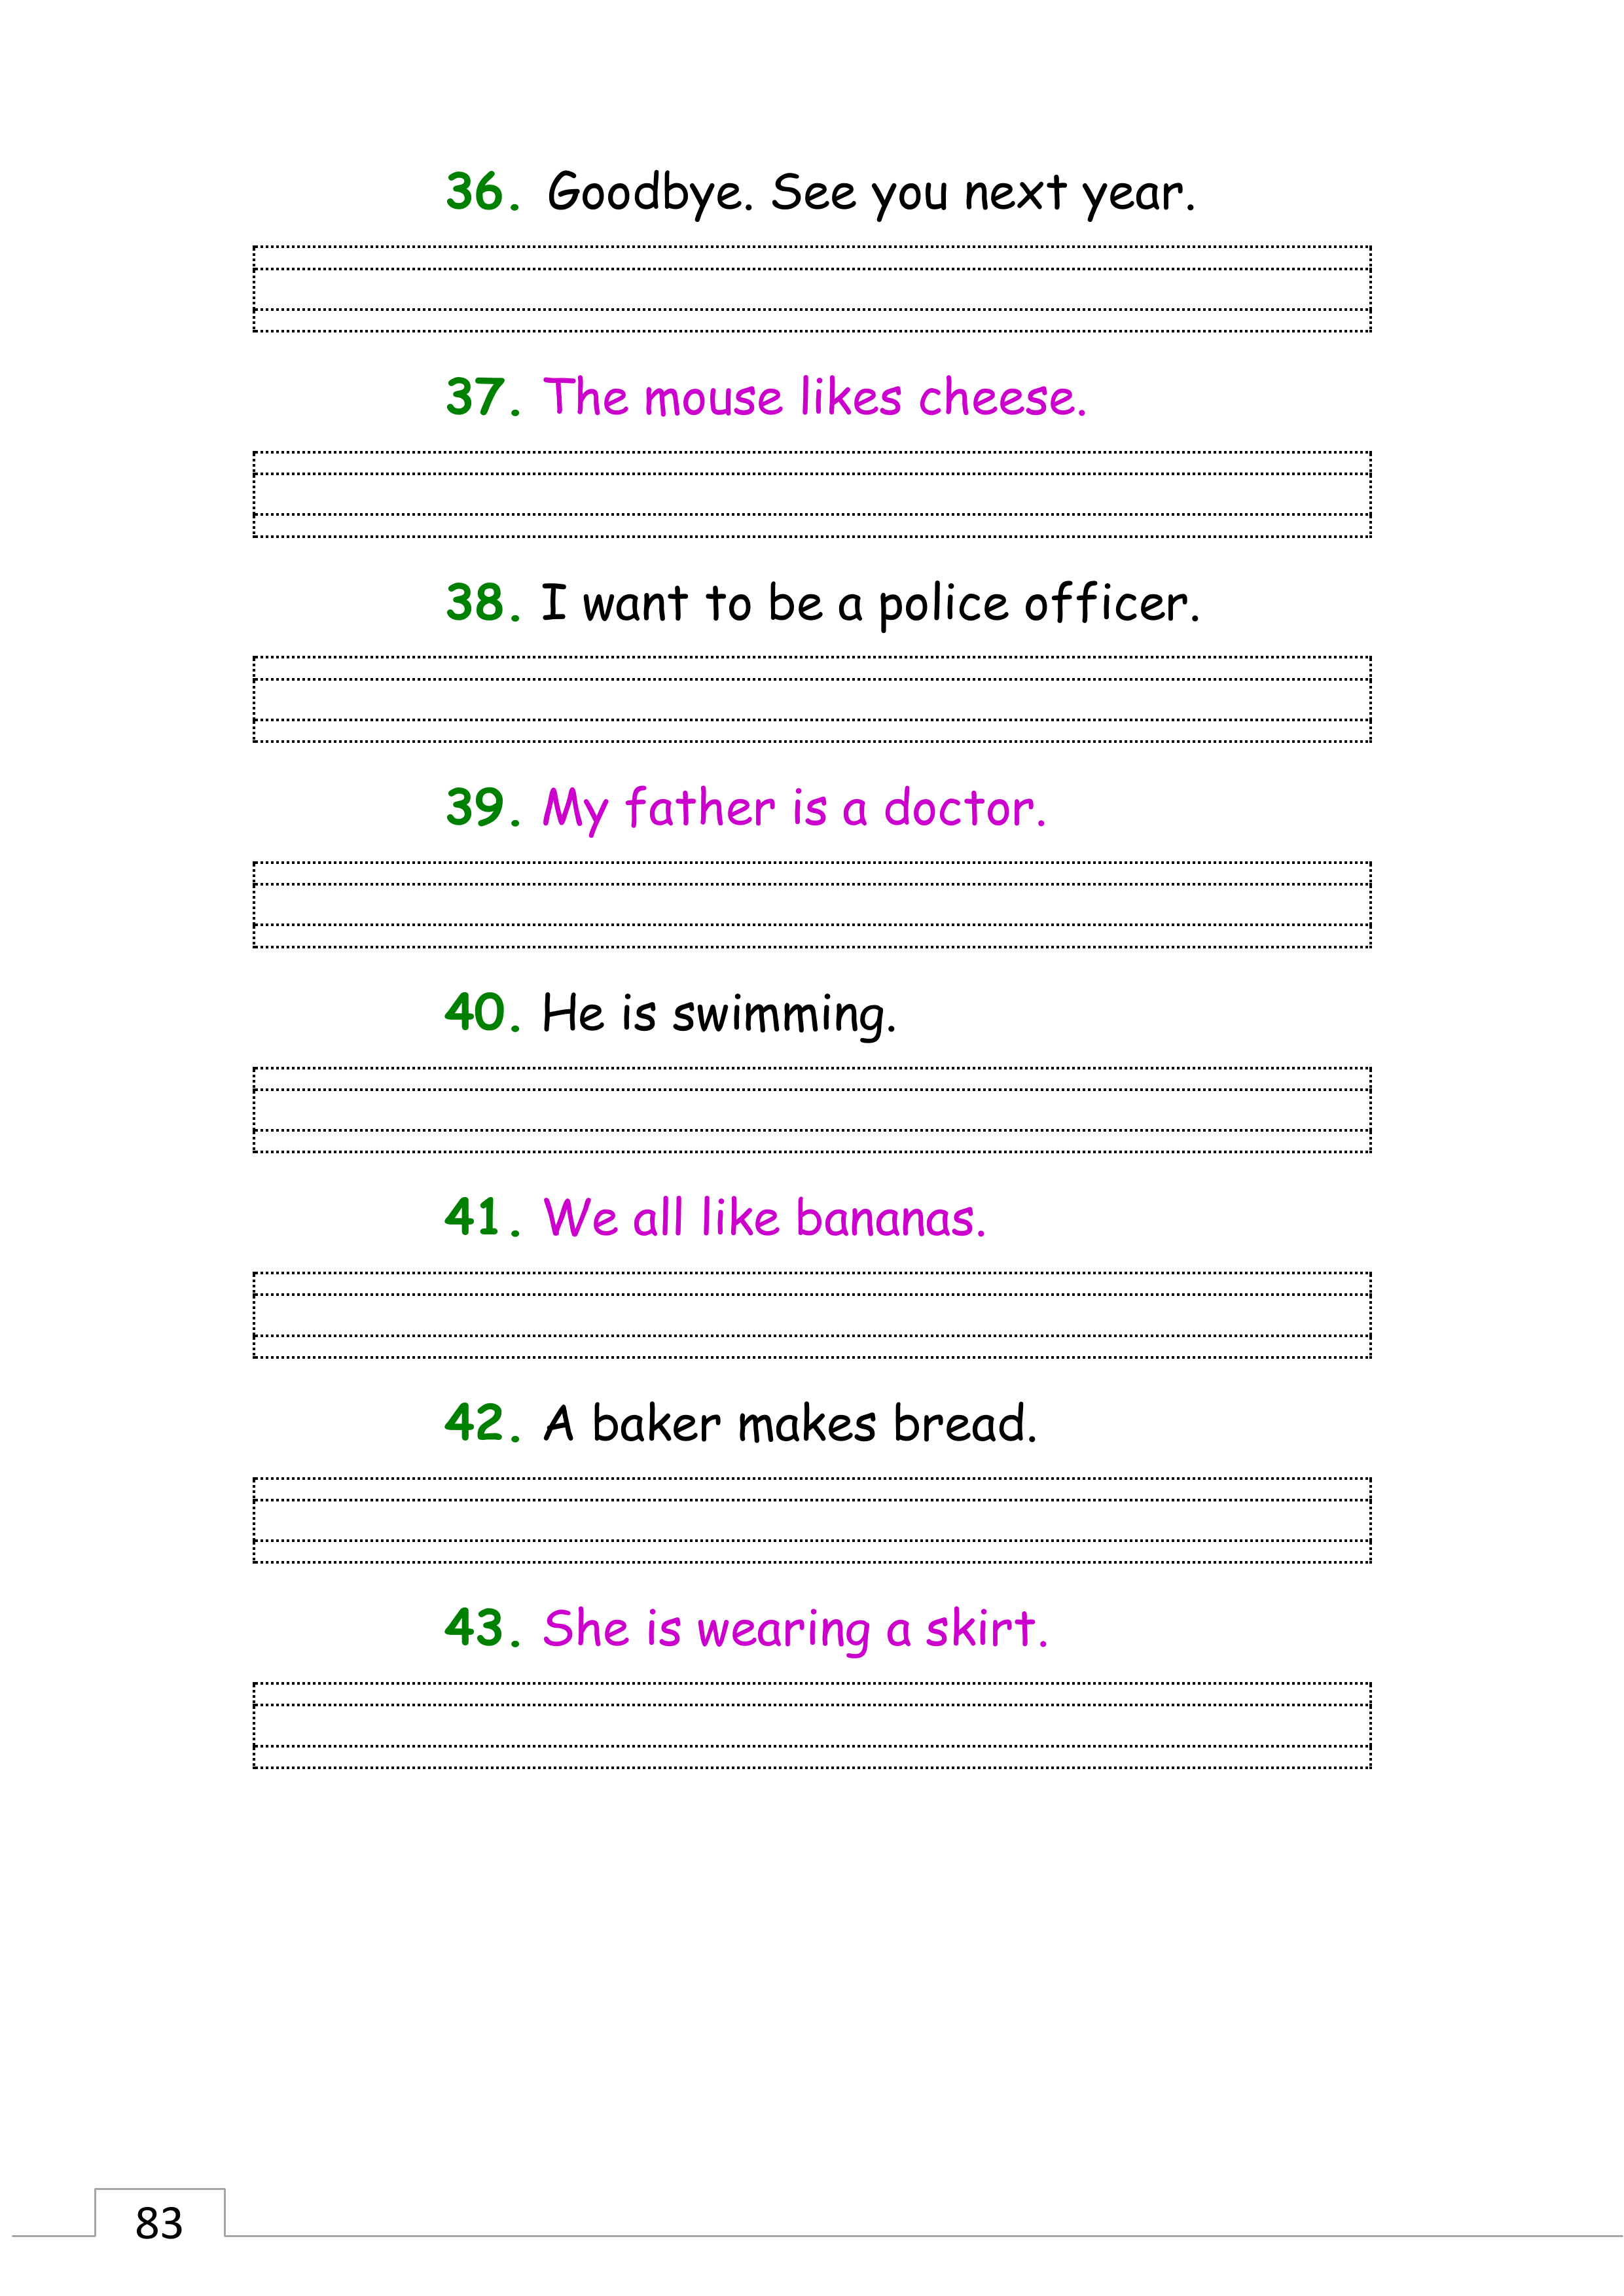 36. Goodbye. See you next year.
37. The mouse likes cheese.
38. I want to be a police officer.
39. My father is a doctor.
40. He is swimming.
41. We all like bananas.
42. A baker makes bread.
43. She is wearing a skirt.
83